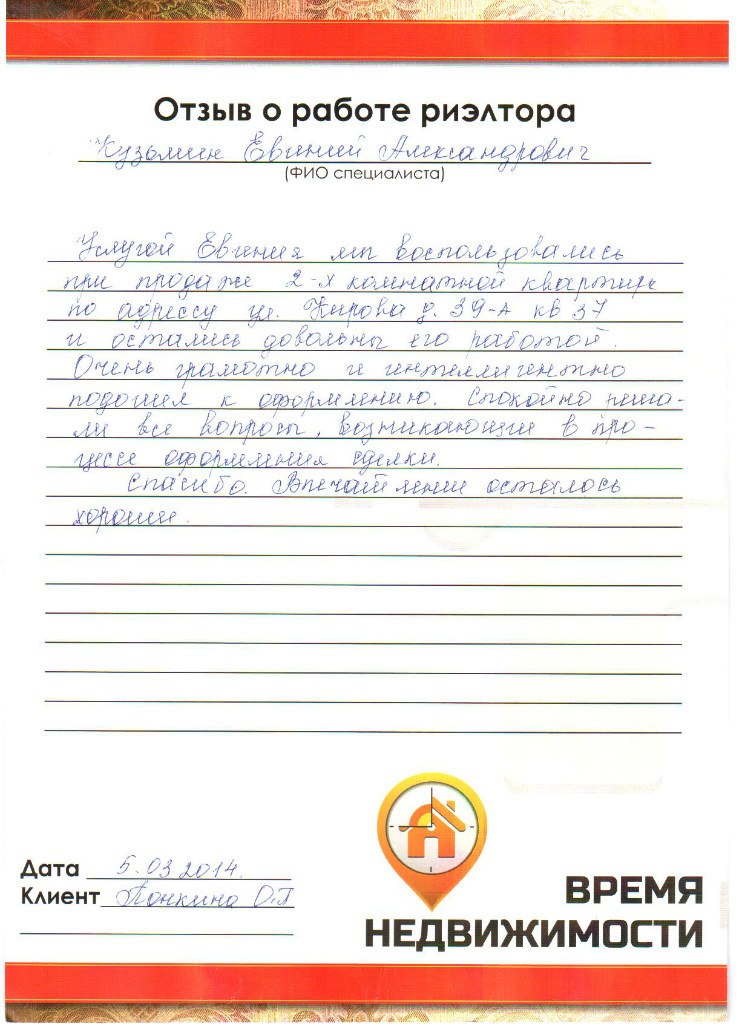 Отзыв о работе риэлтора
Кузьмин Евгений Александрович
(ФИО специалиста)
Услугой Евгения мы воспользовались
при продаже 2-х комнатной квартиры
по адрессу ул. Кирова д. 39-А кв 37
и остались довольны его работой.
Очень грамотно и интеллигентно
подошел к оформлению. Спокойно реша-
ли все вопросы, возникающии в про-
цессе оформления сделки.
Спасибо. Впечатление осталось
хорошии.
Дата 5.03 2014.
Клиент Понкина О.П
ВРЕМЯ
НЕДВИЖИМОСТИ